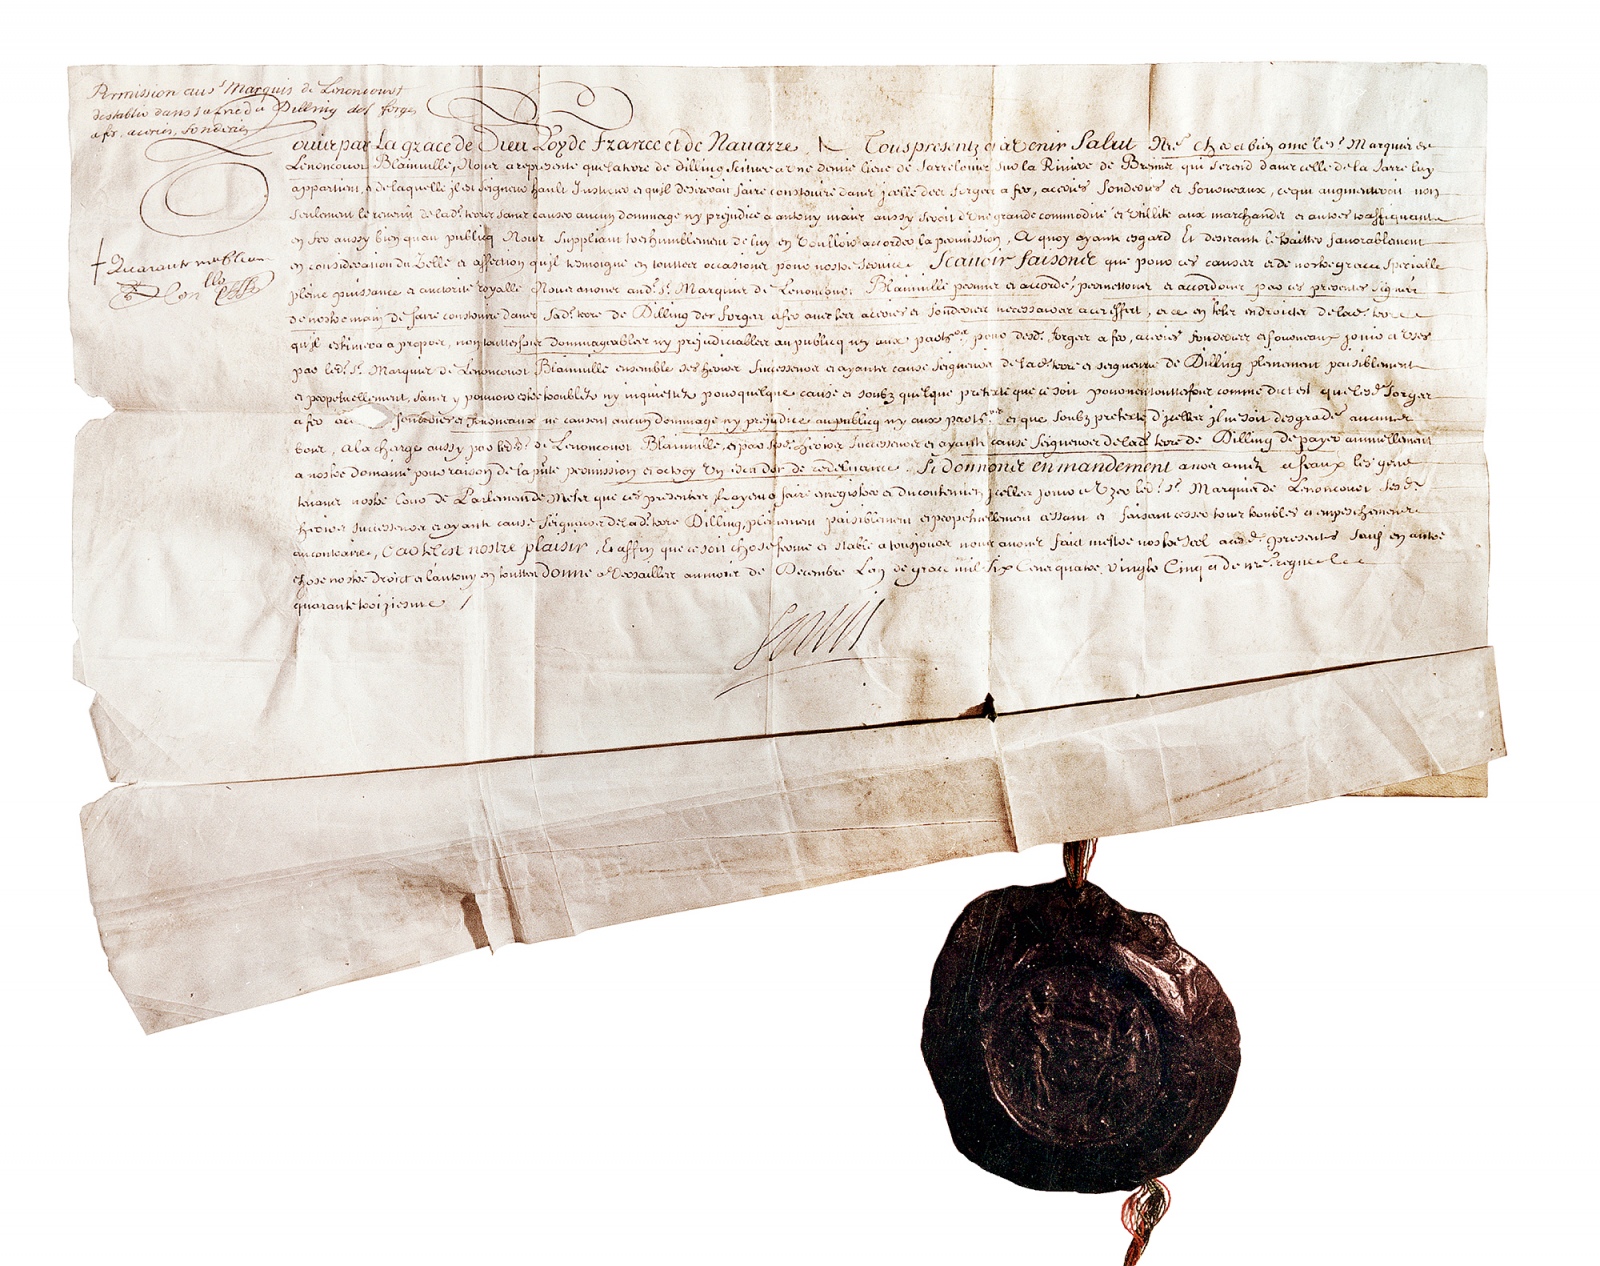 Permission au Sr Marquis de Lenoncourt
destablir dans sa terre de Dilling des forges
a fer, acieries, fonderies
Louis par La grace de Dieu Roy de France et de Navarre, A Tous presents et a venir Salut Nre cher et bien amé le Sr Marquis de
Lenoncourt Blainville, Nous a representé que la terre de dilling scituee a une demie lieue de Sarrelouis sur la Riviere de Breims qui se rend dans celle de la Sarre luy
appartient, et de laquelle il est seigneur hault Justicier et qu'il desireroit faire construire dans jcelle des forges a fer, acieries fonderies et fourneaux, ce qui augmenteroit non
seulement le revenu de lad. terre sans causer aucun dommage ny prejudice a aussy seroit d'une grande commodité et utilité aux marchands et autres traffiquants
en fer aussy bien qu'au publicq Nous suppliant tres humblement de luy en voulloir accorder la permission, A quoy ayant esgard Et desirant le traitter favorablement
en consideration du Zelle et affection qu'il tesmoigne en touttes occasions pour nostre service. Scavoir faisons que pour ces causes et de nostre grace specialle
pleine puissance et auctorité royalle Nous avons aud. Sr. Marquis de Lenoncourt Blainville permis et accordé, permettons et accordons par ces presentes signées
de nostre main de faire construire dans sad. terre de Dilling des forges a fer avec les acieries et fonderies necessaires a cet effect, et ce en tels endroicts de lad. terre
qu'jl estimera a propos, non touttesfois dommageables ny prejudiciables au publicq ny aux parters pour desd. forges a fer, acieries fonderies et fourneaux jouir et user
par led. Sr. Marquis de Lenoncourt Blainville ensemble ses hoirs Successeurs et ayants cause Seigneurs de lad. terre et seigneurie de Dilling plainement paisiblement
et perpetuellement, sans y pouvoir estre troublez ny inquietez pour quelque cause et soubz quelque pretexte que ce soit pourveu touttesfois comme dict est que lesd. forges
a fer fonderies et fourneaux ne causent aucun dommage ny prejudice au publicq ny aux parters et que soubz pretexte d'jcelles jl ne soit desgradé aucuns
bois, a la charge aussy par led. Sr. de Lenoncourt Blainville, et par sesd. hoirs Successeurs et ayants cause Seigneurs de lad. terre de Dilling de payer annuellement
a nostre domaine pour raison de la pnte permission et octroy Un escu d'or de redevance. Si donnons en mandement a nos amez et feaux les gens
tenans nostre Cour de Parlement de Metz que ces presentes ils ayent a faire enregistrer et du contenu en jcelles jouir et Uzer led. Sr. Marquis de Lenoncourt sesd.
hoirs successeurs et ayants cause Seigneurs de lad. terre Dilling, plainement paisiblement et perpetuellement cessant et faisant cesser tous troubles et empeschemens
au contraire, Car tel est nostre plaisir, Et affin que ce soit chose ferme et stable a tousjours nous avons faict mettre nostre Scel a cesd. presentes Sauf en autre
chose nostre Droict et l'autruy en touttes Donné a Versailles au mois de Decembre L'an de grace mil Six Cens quatre vingts Cinq et de nre regne le
quarante troisiesme /
Louis